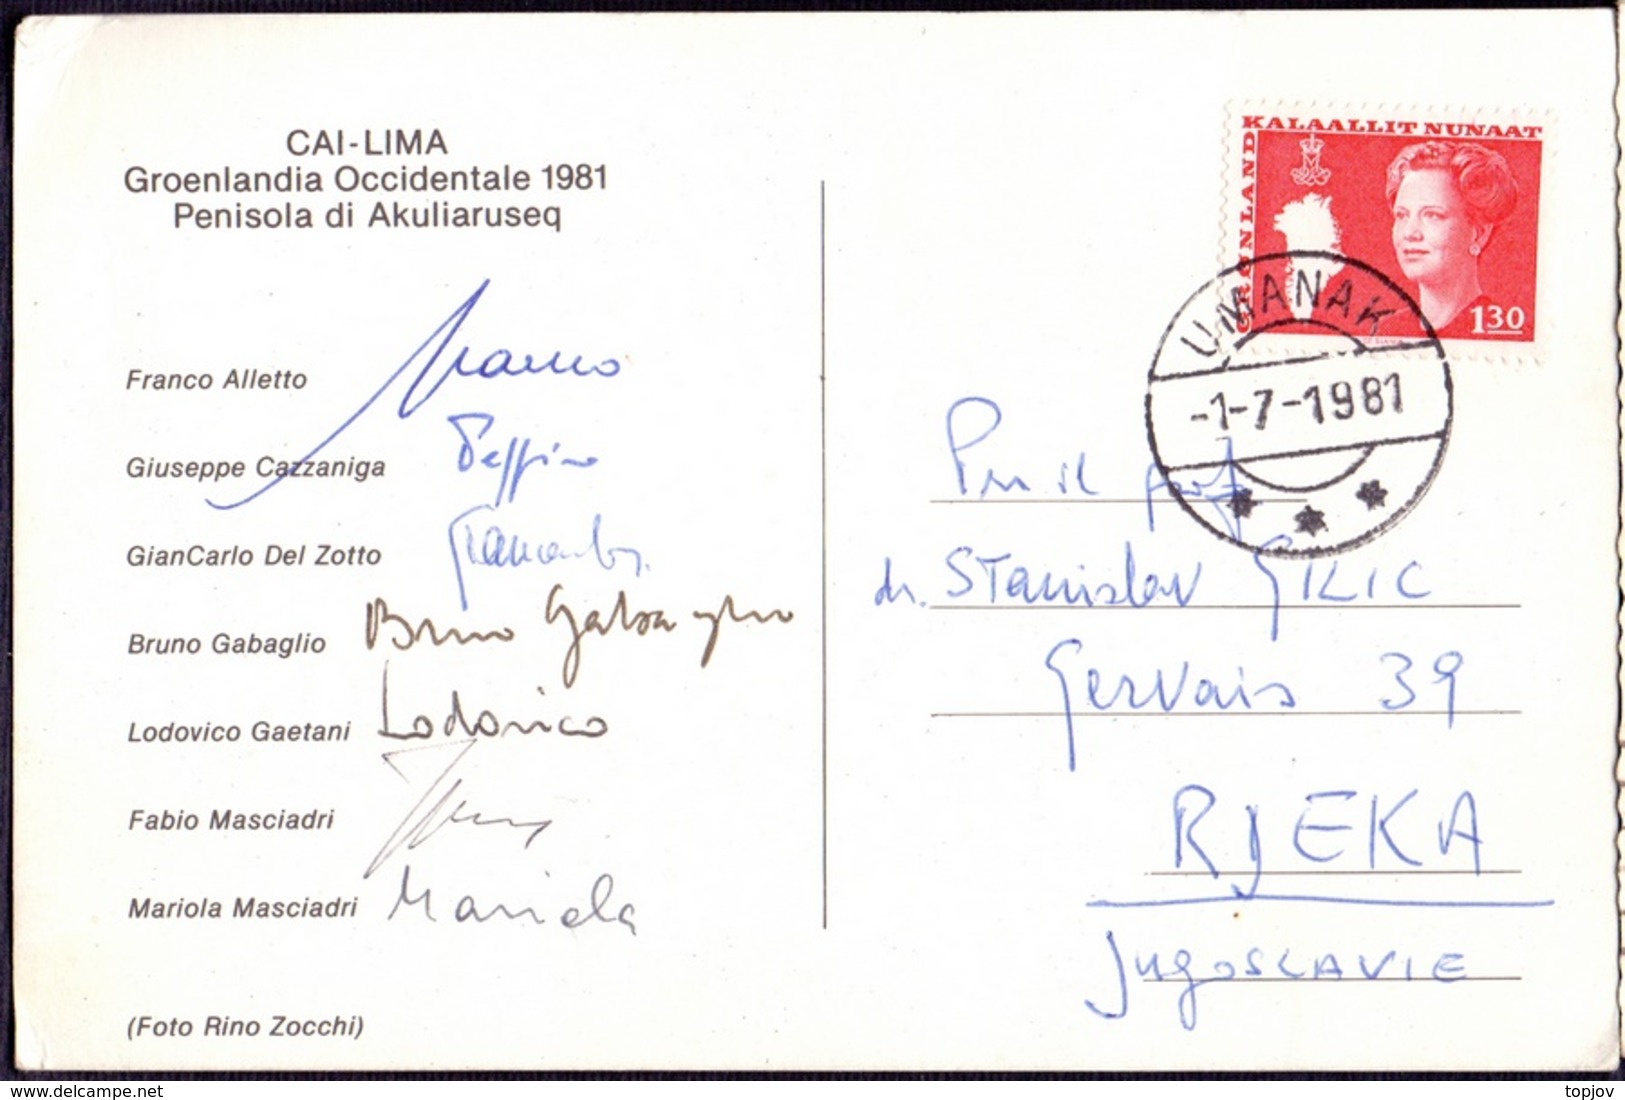 CAI-LIMA
Groenlandia Occidentale 1981
Penisola di Akuliaruseq
Franco Alletto
Franco
Giuseppe Cazzaniga
Peppino
GianCarlo Del Zotto
Giancarlo
Bruno Gabaglio
Bruno Gabaglio
Lodovico Gaetani
Lodovico
Fabio Masciadri
Mariola Masciadri
Mariola
(Foto Rino Zocchi)
KALAALLIT NUNAAT
GRØNLAND
130
UMANAK
-1-7-1981
prof
dr. Stanislav GILIC
Gervais 39
RIJEKA
JugoSLAVIE
delcampe.net
topjov